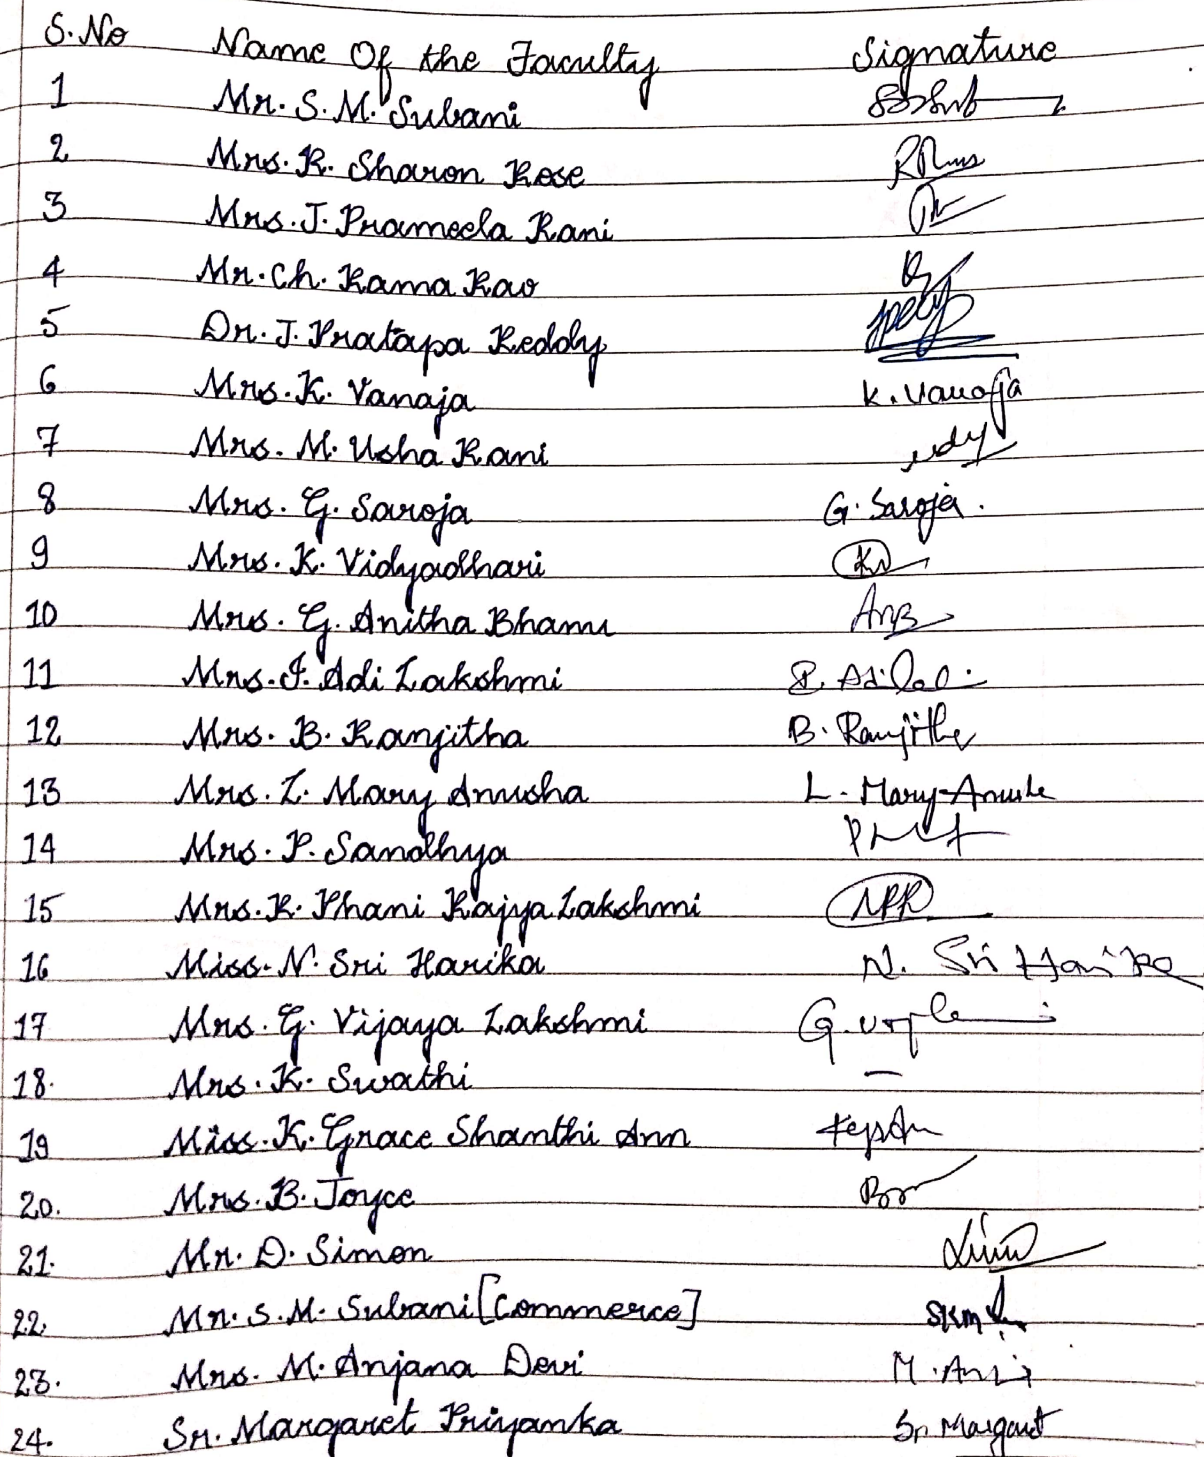 S.No Name Of the Faculty Signature
1 Mr. S. M. Subani
2 Mrs. R. Sharon Rose
3 Mrs. J. Prameela Rani
4 Mr. Ch. Rama Rao
5 Dr. J. Pratapa Reddy
6 Mrs. K. Vanaja K. Vanaja
7 Mrs. M. Usha Rani
8 Mrs. G. Saroja G. Saroja.
9 Mrs. K. Vidyadhari
10 Mrs. G. Anitha Bhanu
11 Mrs. I. Adi Lakshmi
12 Mrs. B. Ranjitha B. Ranjitha
13 Mrs. L. Mary Anusha L. Mary Anusha
14 Mrs. P. Sandhya
15 Mrs. R. Phani Rajya Lakshmi
16 Miss. N. Sri Harika N. Sri Harika
17 Mrs. G. Vijaya Lakshmi
18. Mrs. K. Swathi –
19 Miss. K. Grace Shanthi Ann
20. Mrs. B. Joyce
21. Mr. D. Simon
22. Mr. S. M. Subani [Commerce]
23. Mrs. M. Anjana Devi
24. Sr. Margaret Priyanka Sr Margaret